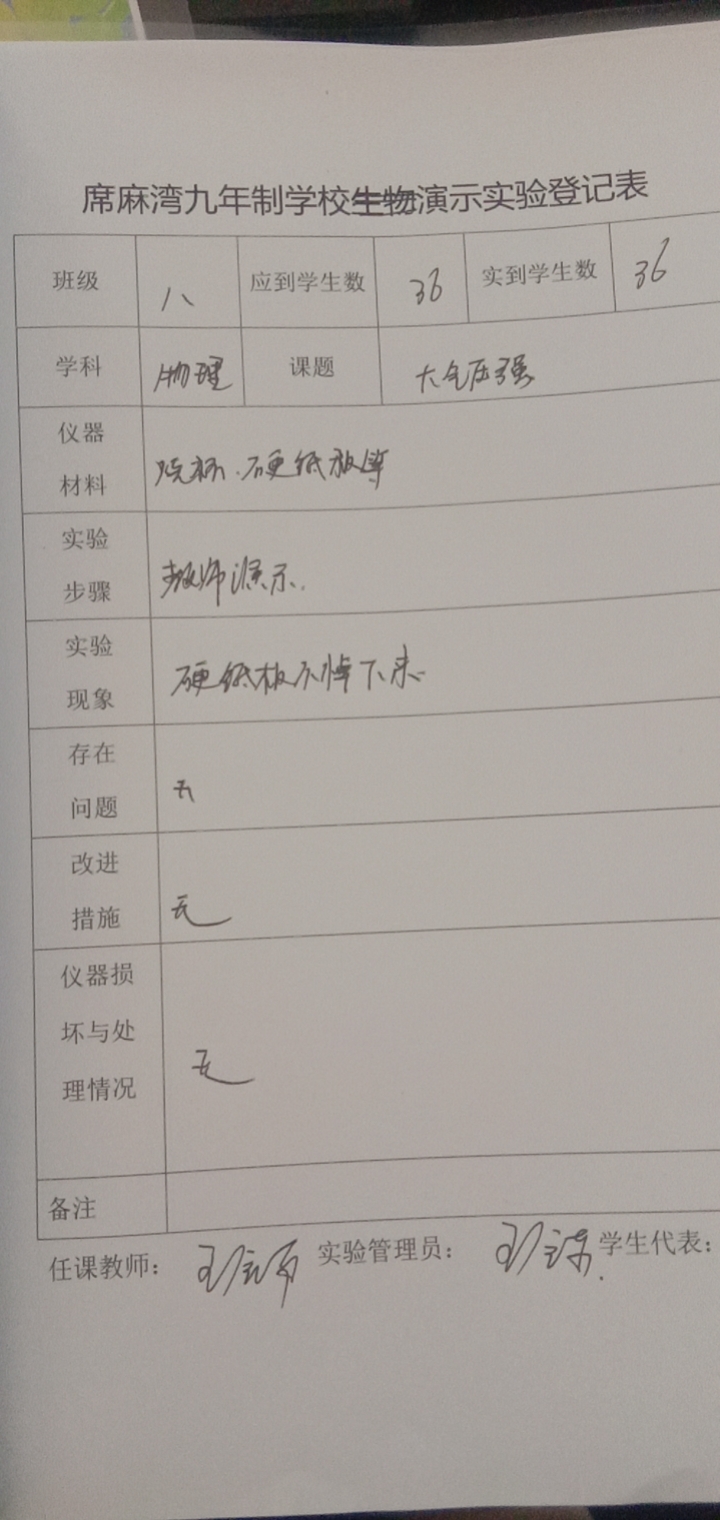 席麻湾九年制学校生物演示实验登记表
班级 八 应到学生数 36 实到学生数 36
学科 物理 课题 大气压强
仪器
材料
烧杯、硬纸板等
实验
步骤
教师演示.
实验
现象
硬纸板不掉下来.
存在
问题
无
改进
措施
无
仪器损
坏与处
理情况
无
备注
任课教师： 实验管理员： 学生代表：